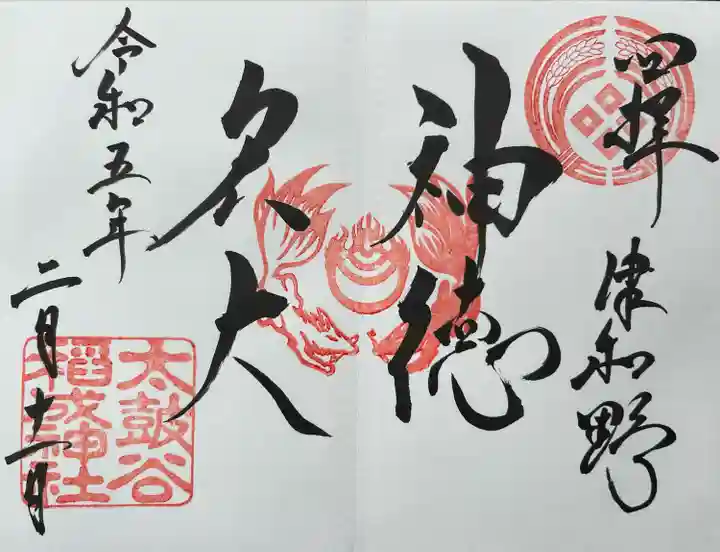 拝
津和野
神徳
大
令和五年
二月十一日
太皷谷
稲成神社